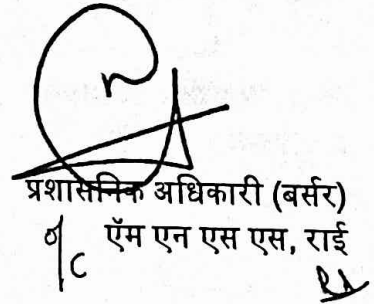 प्रशासनिक अधिकारी (बर्सर)
o/c ऍम एन एस एस, राई